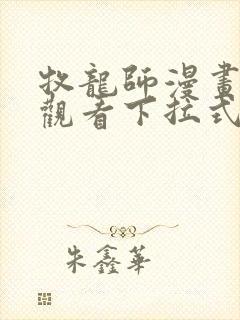 牧龍師漫畫
觀看下拉式
朱鑫華